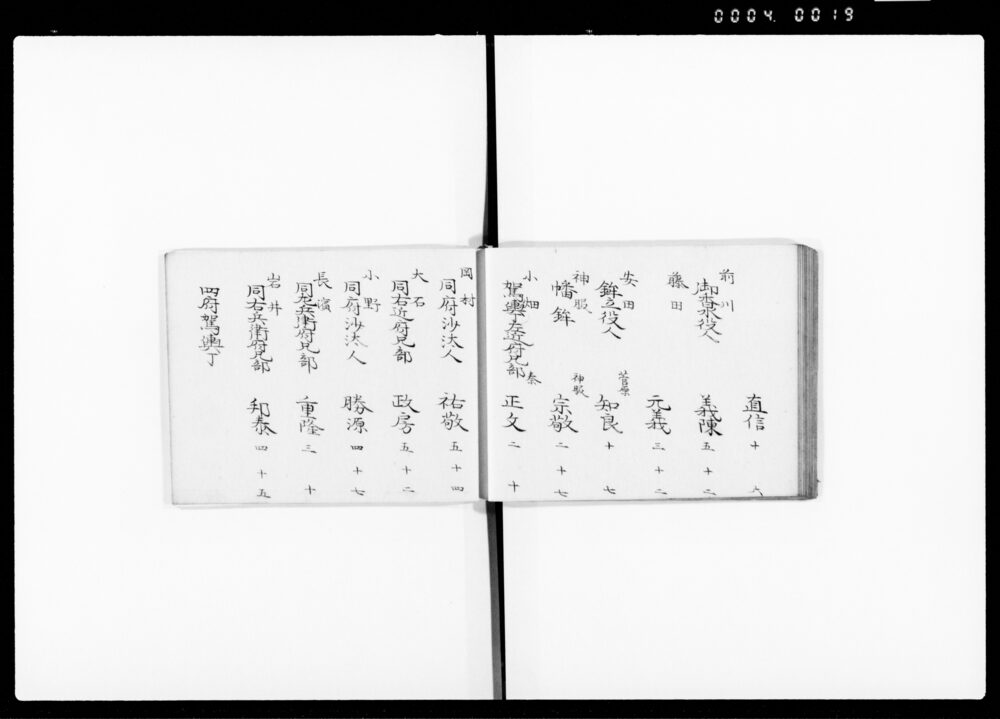 0004. 0019
直信 十六
前川
御香水役人 義陳 五十二
藤田
元義 三十二
安田 菅原
鉾立役人 知良 十七
神服 神服
幡鉾 宗敬 二十七
小畑 秦
駕輿丁左近府兄部 正文 二十
岡村
同府沙汰人 祐敬 五十四
大石
同右近府兄部 政房 五十二
小野
同府沙汰人 勝源 四十七
長濱
同左兵衛府兄部 重隆 三十
岩井
同右兵衛府兄部 邦泰 四十五
四府駕輿丁